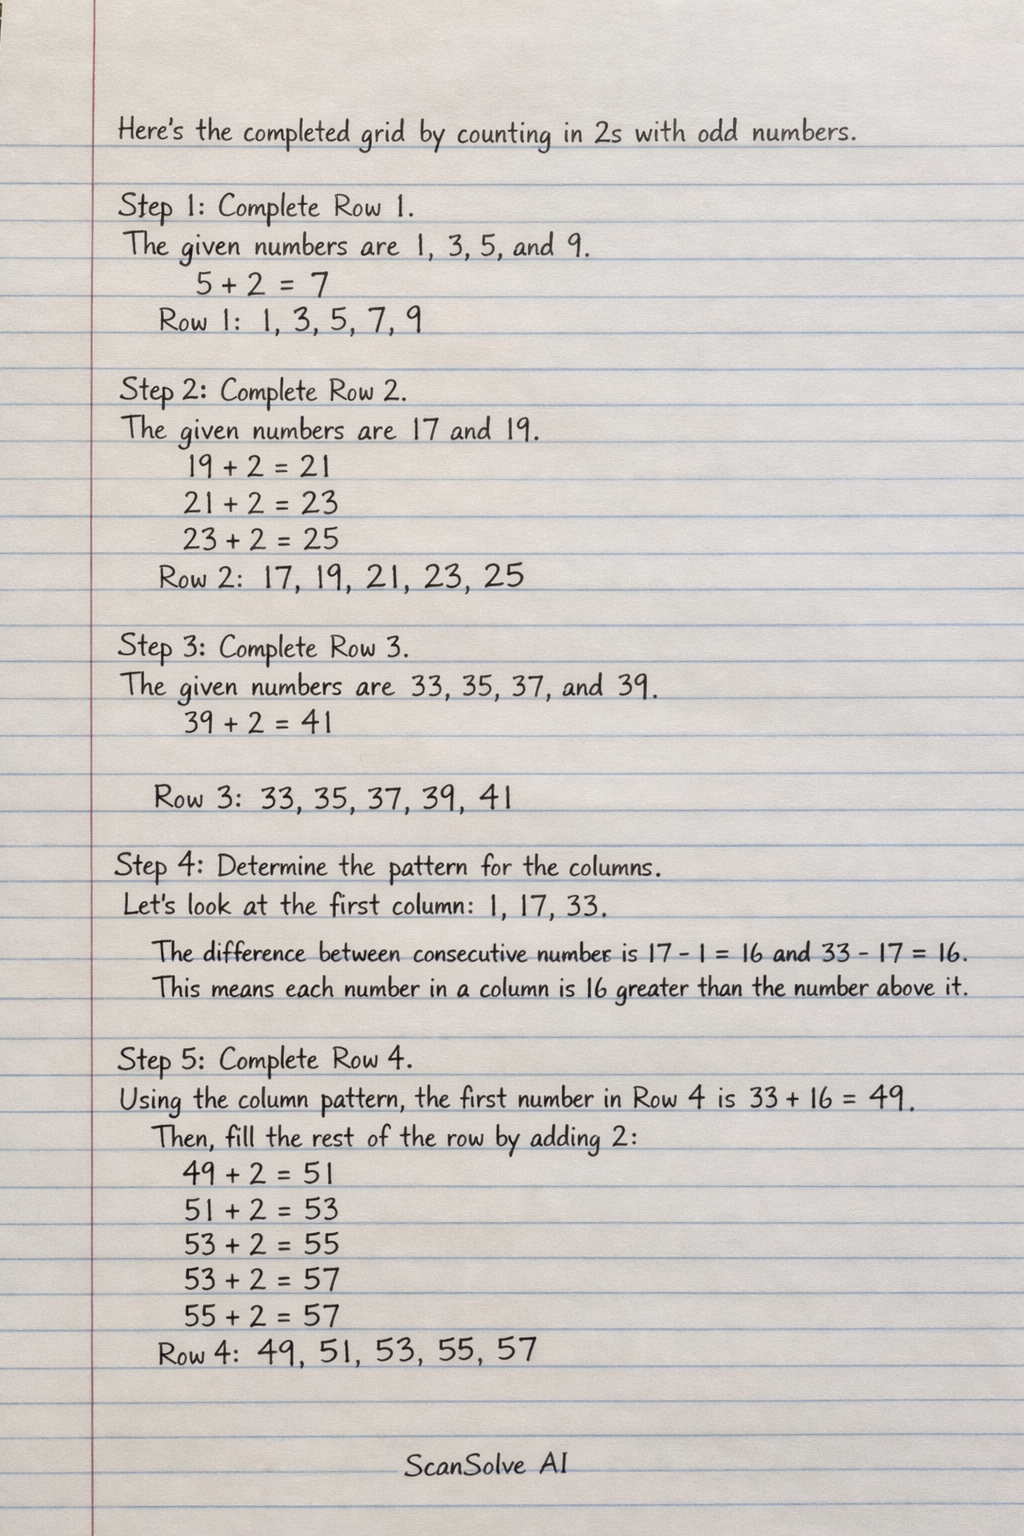 Here's the completed grid by counting in 2s with odd numbers.
Step 1: Complete Row 1.
The given numbers are 1, 3, 5, and 9.
5 + 2 = 7
Row 1: 1, 3, 5, 7, 9
Step 2: Complete Row 2.
The given numbers are 17 and 19.
19 + 2 = 21
21 + 2 = 23
23 + 2 = 25
Row 2: 17, 19, 21, 23, 25
Step 3: Complete Row 3.
The given numbers are 33, 35, 37, and 39.
39 + 2 = 41
Row 3: 33, 35, 37, 39, 41
Step 4: Determine the pattern for the columns.
Let's look at the first column: 1, 17, 33.
The difference between consecutive number is 17 - 1 = 16 and 33 - 17 = 16.
This means each number in a column is 16 greater than the number above it.
Step 5: Complete Row 4.
Using the column pattern, the first number in Row 4 is 33 + 16 = 49.
Then, fill the rest of the row by adding 2:
49 + 2 = 51
51 + 2 = 53
53 + 2 = 55
53 + 2 = 57
55 + 2 = 57
Row 4: 49, 51, 53, 55, 57
ScanSolve AI